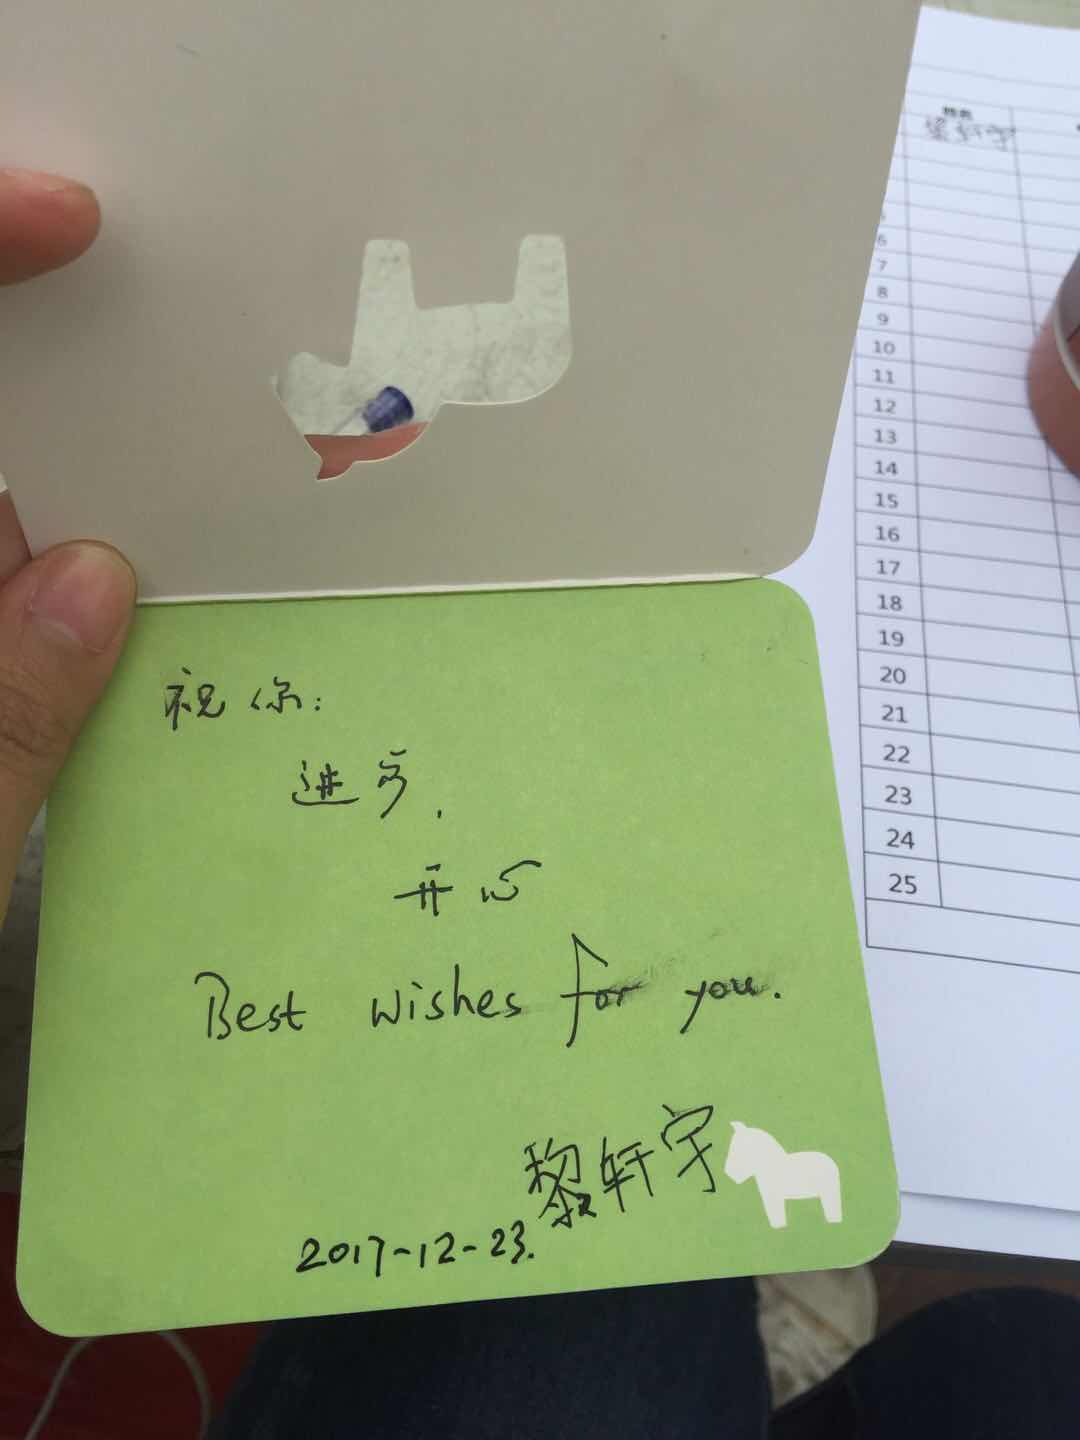 祝你:
进步.
开心
Best wishes for you.
黎轩宇
2017-12-23.
姓名
黎轩宇
6
7
8
9
10
11
12
13
14
15
16
17
18
19
20
21
22
23
24
25